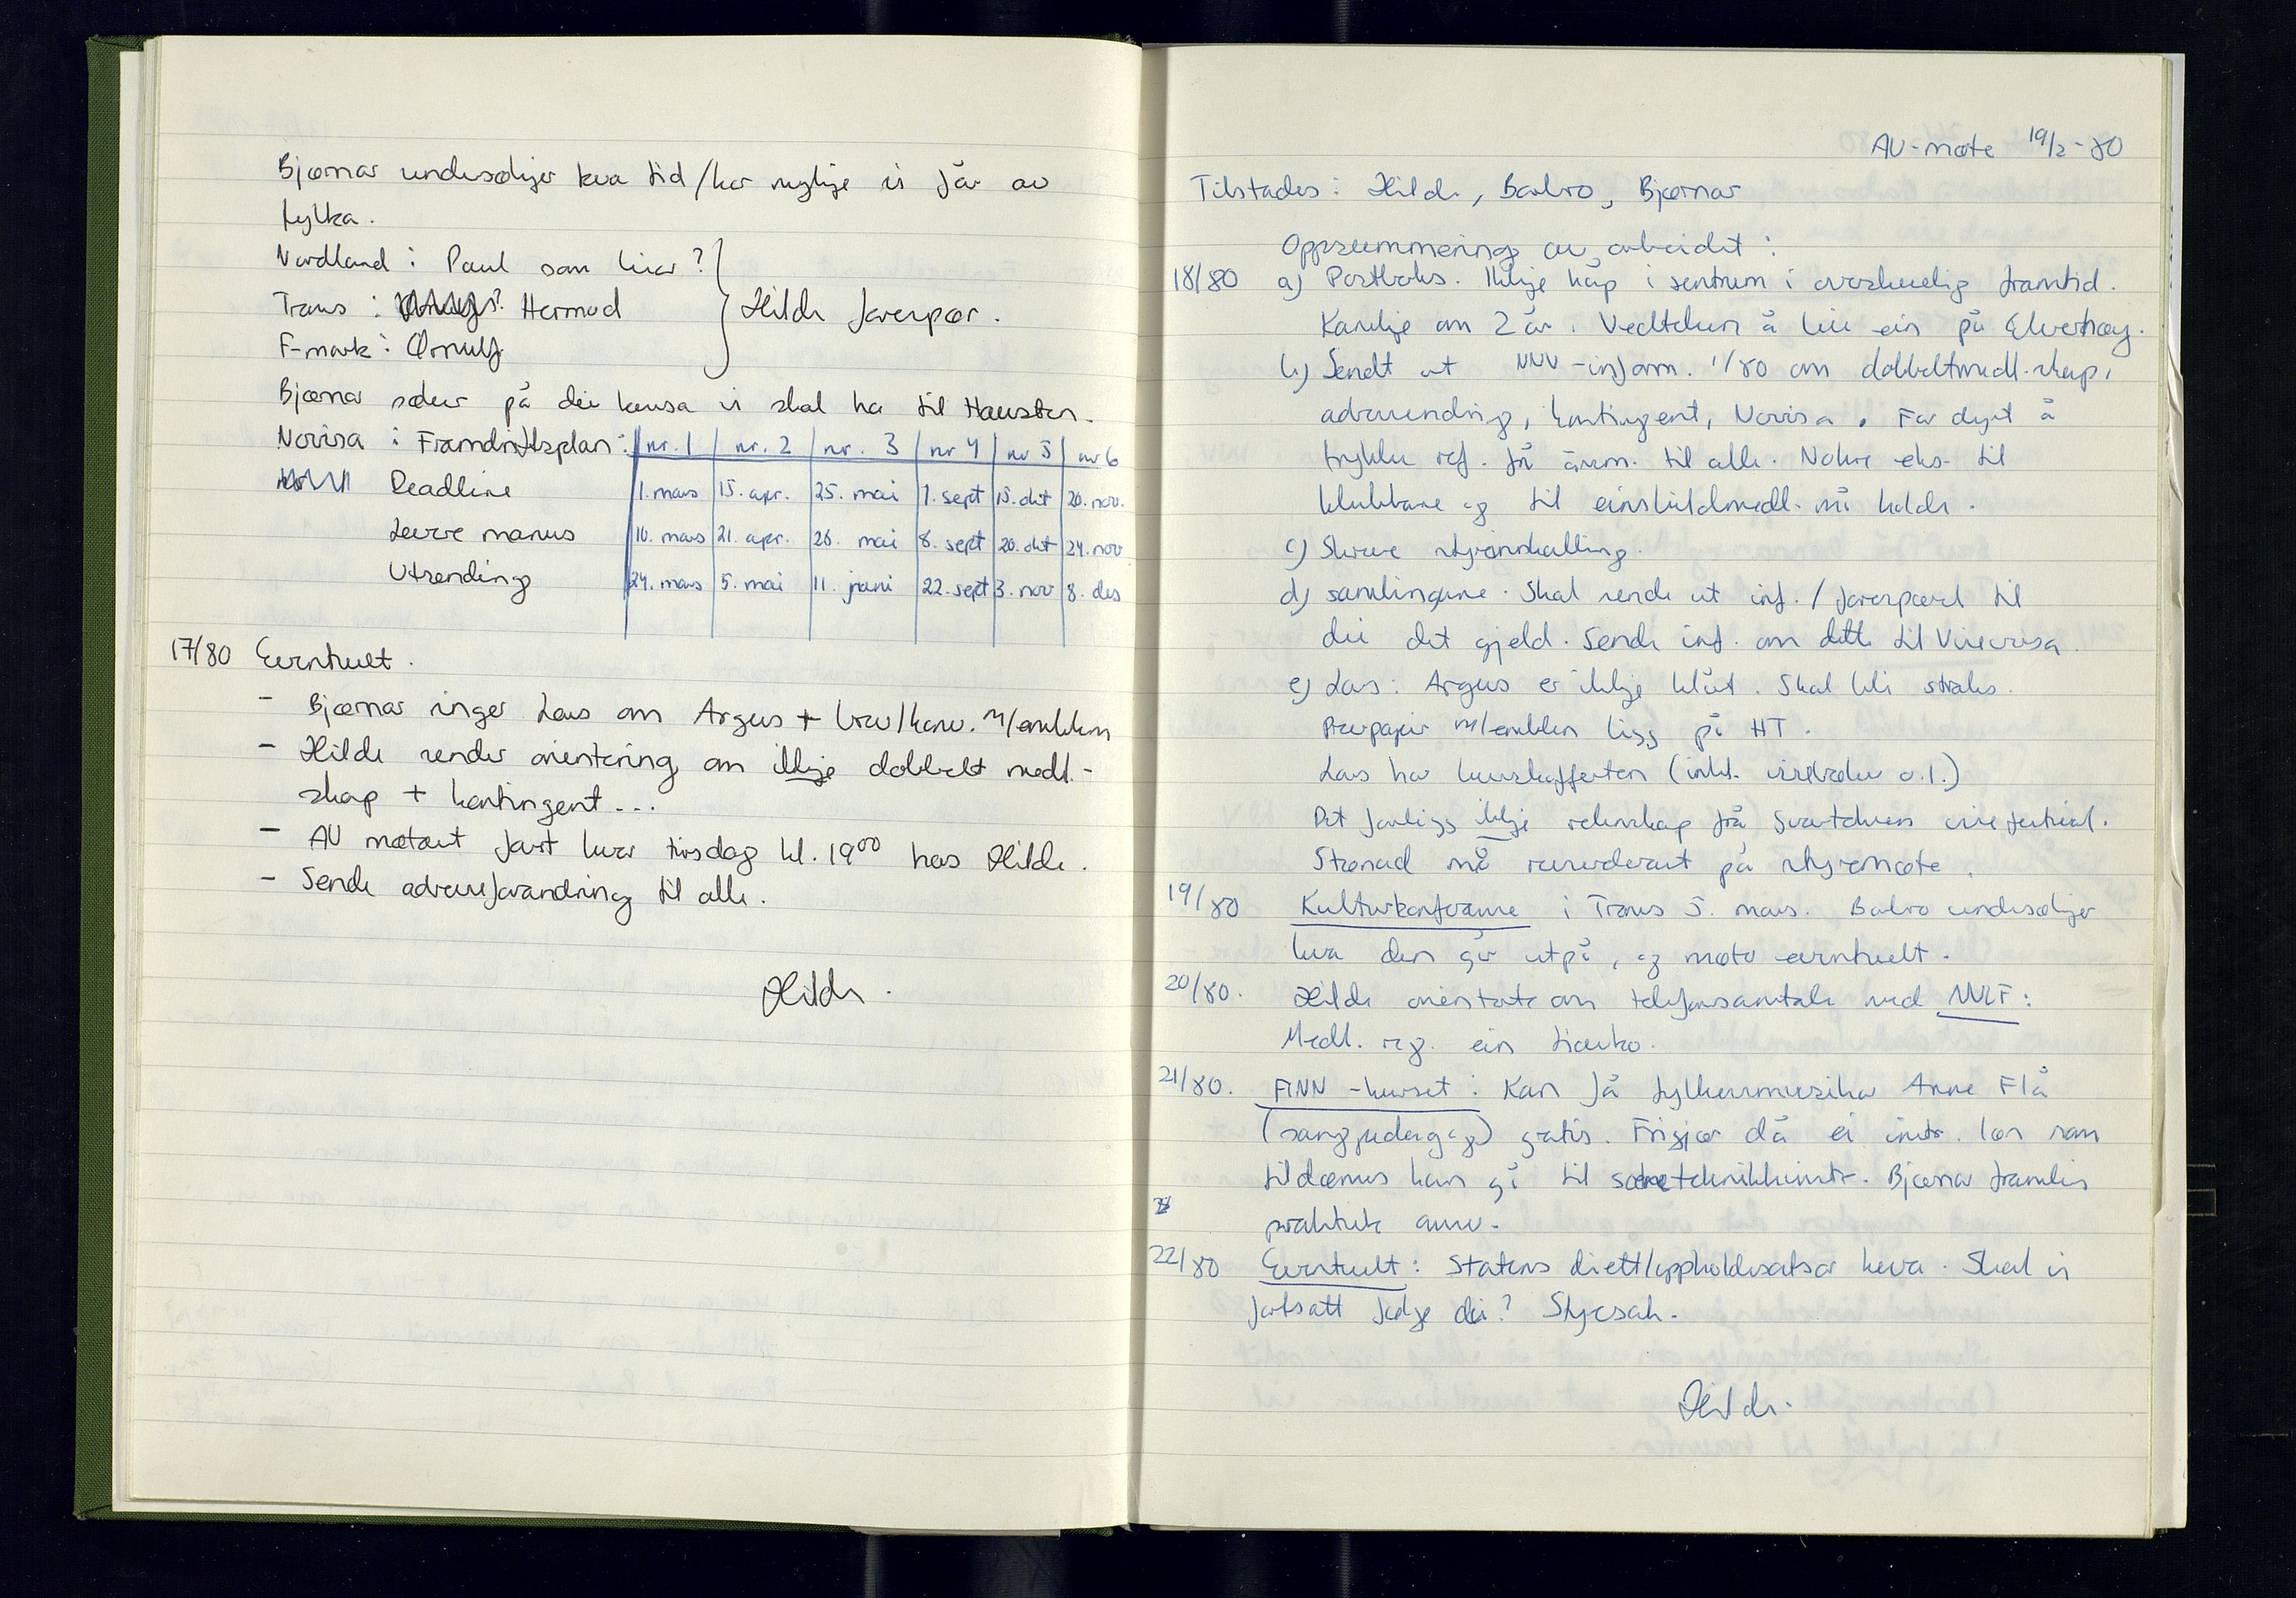 Bjørnar undersøkjer kva tid/kor mykje vi får av
fylka.
Nordland : Paul som bior ?
Troms : Hermod
F-mark : Ørnulf
Hilde forespør.
Bjørnar søker på dei kursa vi skal ha til Hausten.
Norvisa : Framdriftsplan : nr. 1 nr. 2 nr. 3 nr 4 nr 5 nr 6
Deadline 1. mars 15. apr. 25. mai 1. sept 15. okt 20. nov.
Levere manus 10. mars 21. apr. 26. mai 8. sept 20. okt 24. nov
Utsending 24. mars 5. mai 11. juni 22. sept 3. nov 8. des
17/80 Eventuelt.
- Bjørnar ringer Lars om Argus + brev/konv. m/emblem
- Hilde sender orientering om ikkje dobbelt medl.-
skap + kontingent...
- AU møtast fast kvar tirsdag kl. 19⁰⁰ hos Hilde.
- Sende adresseforandring til alle.
Hilde.
AU-møte 19/2-80
Tilstades : Hilde, Barbro, Bjørnar
Oppsummering av arbeidet :
18/80 a) Postboks. Ikkje håp i sentrum i overskuelig framtid.
Kanskje om 2 år. Vedteken å leie ein på Elverhøy.
b) Sendt ut NNV-inform. 1/80 om dobbeltmedl.skap,
adr.endring, kontingent, Norvisa. For dyrt å
trykke ref. frå årsm. til alle. Nokre eks. til
klubbane og til einskildmedl. må holde.
c) Skrive styreinnkalling.
d) samlingane. Skal sende ut inf. / forespørsel til
dei det gjeld. Sende inf. om dette til Viseversa.
e) Lars : Argus er ikkje klårt. Skal bli straks.
Brevpapir m/emblem ligg på HT.
Lars har kurskofferten (inkl. visebøker o.l.)
Det foreligg ikkje rekneskap frå Svartdvens visefestival.
Strønad må revurderast på styremøte.
19/80 Kulturkonferanse i Troms 5. mars. Barbro undersøkjer
kva den går utpå, og møter eventuelt.
20/80. Hilde orienterte om telefonsamtale med NVLF :
Medl. reg. ein tiarko.
21/80. FINN-kurset : Kan få fylkesmusikar Anne Flå
(sangpedagog) gratis. Frigjør då ei instr. løn som
tildømes kan gå til sceneteknikkinstr. Bjørnar framleis
praktisk ansv.
22/80 Eventuelt : Statens diett/oppholdssatsar heva. Skal vi
fortsatt følgje dei? Styresak.
Hilde.